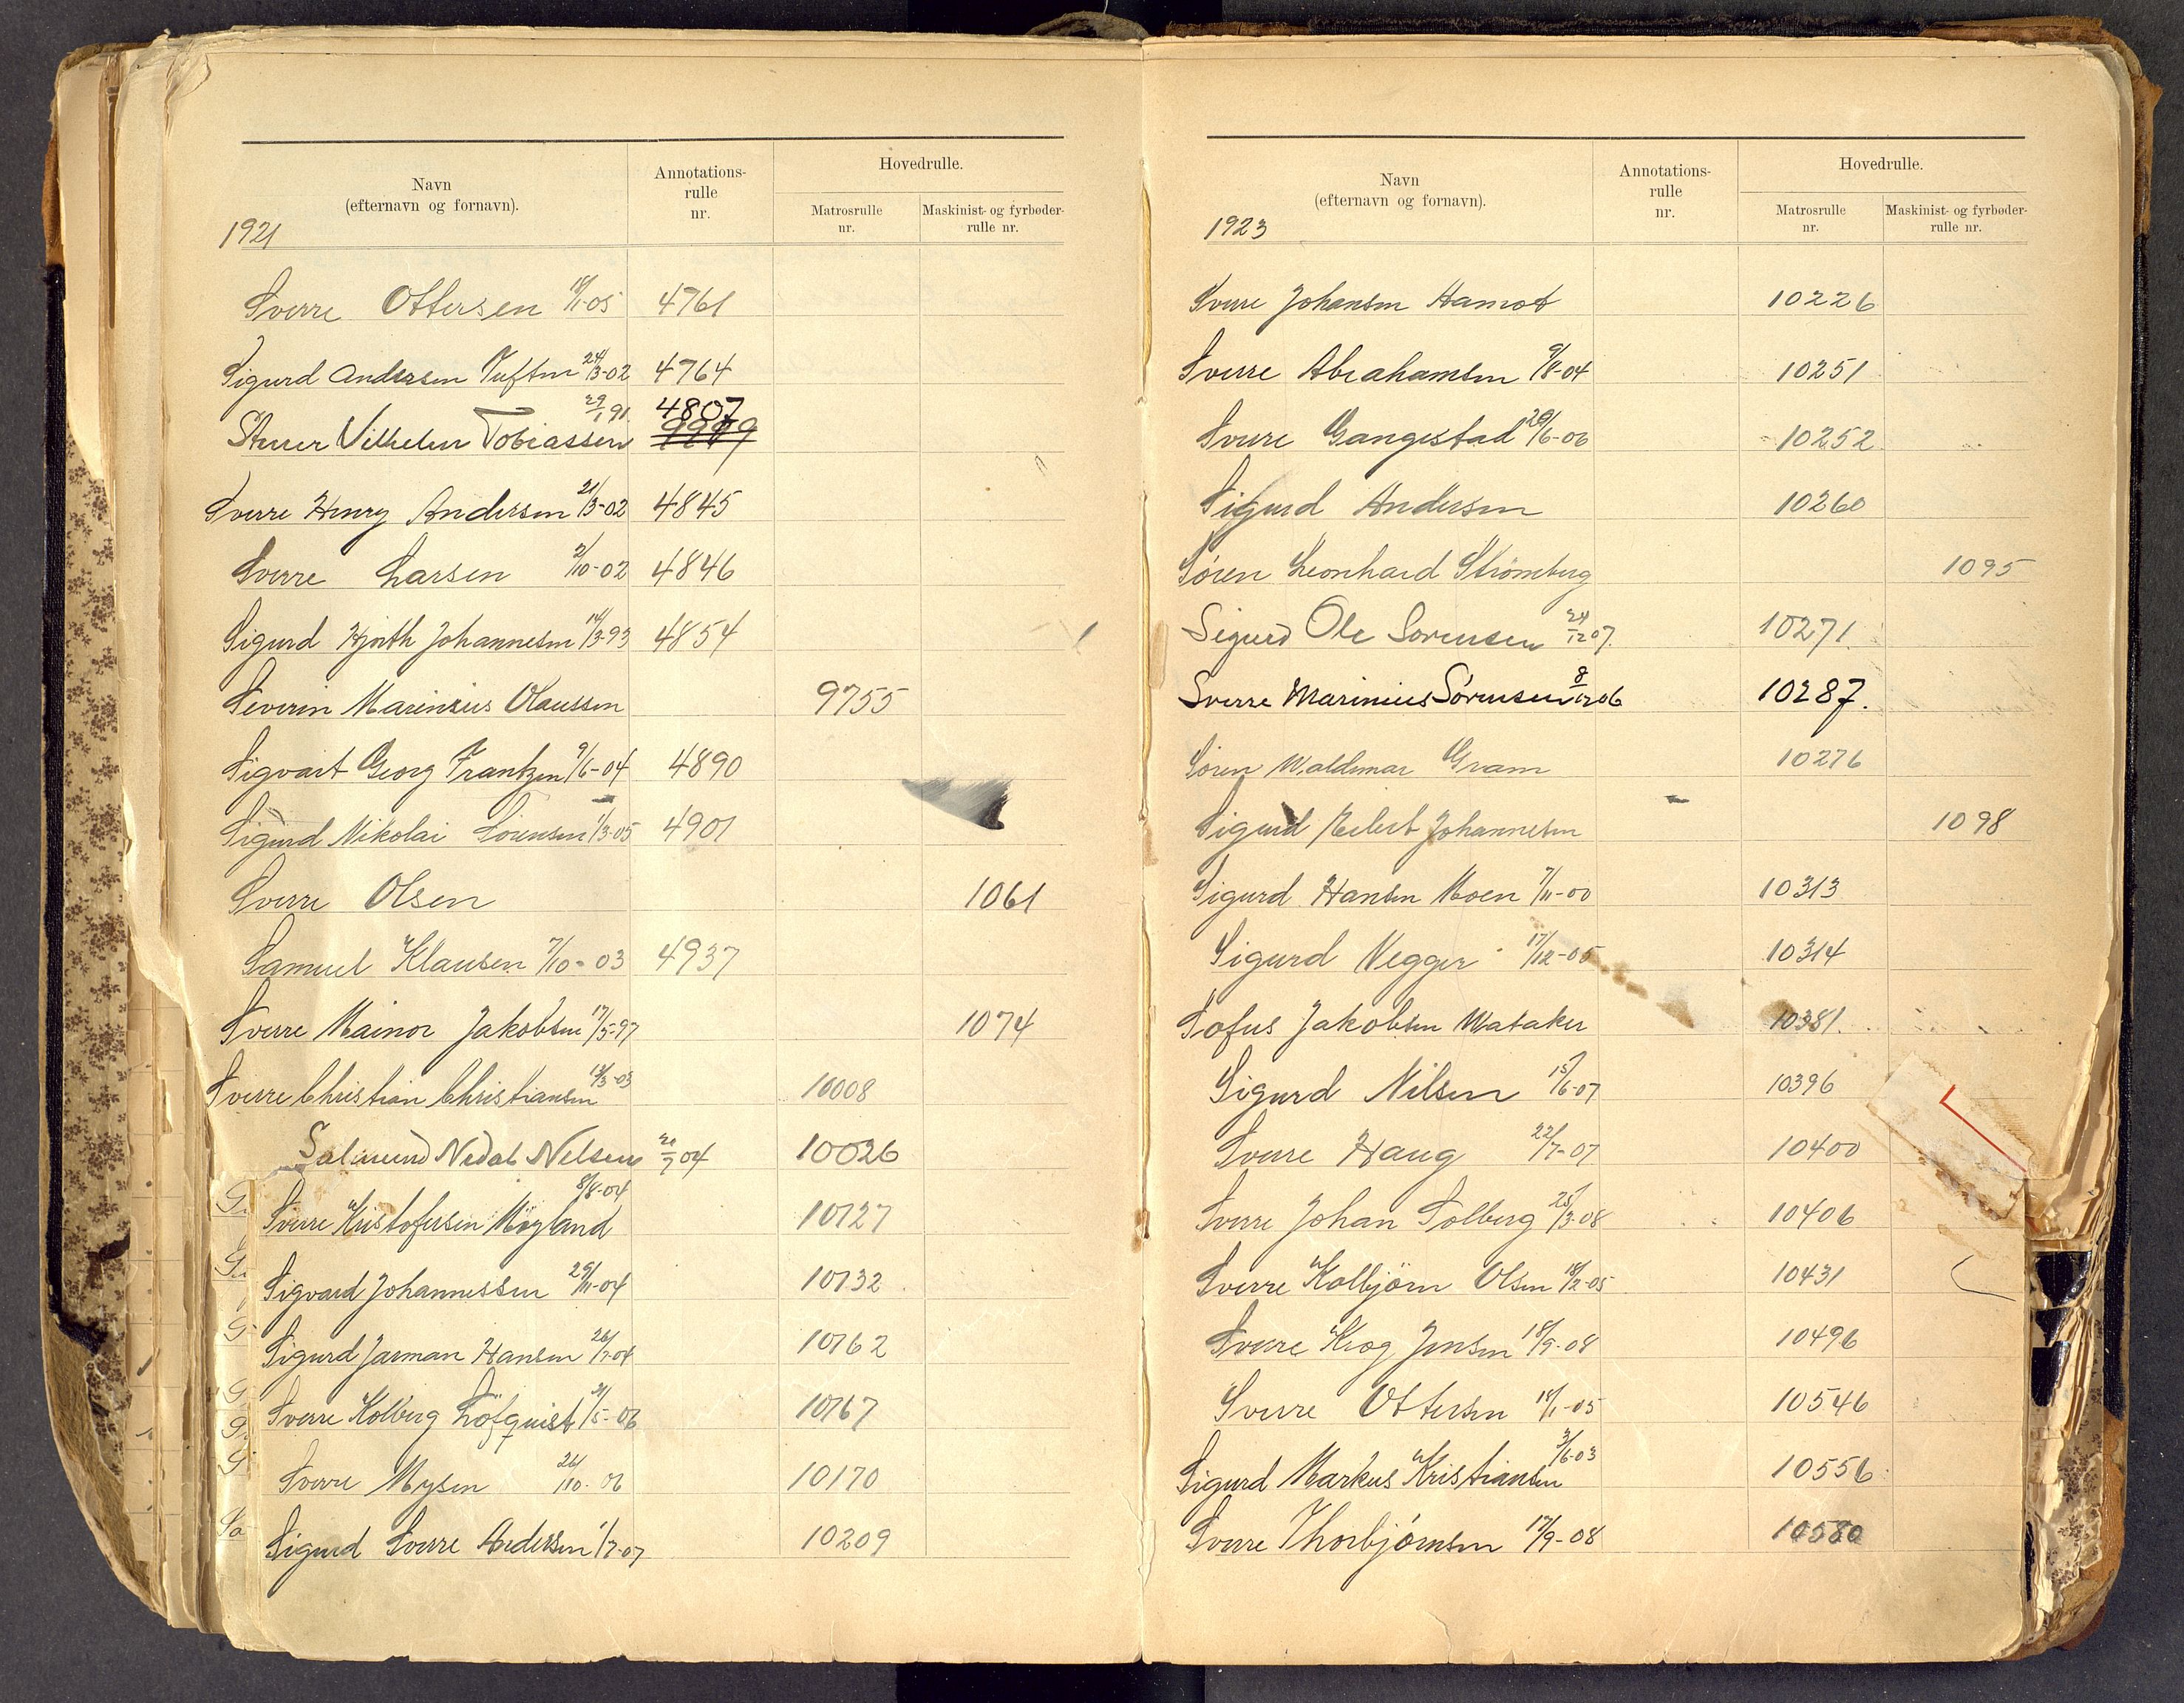 Navn
(efternavn og fornavn).
Annotations-
rulle
nr.
Hovedrulle.
Matrosrulle
nr.
Maskinist- og fyrbøder-
rulle nr.
1921
Sverre Ottersen 18/1-05 4761
Sigurd Andersen Tuften 24/3-02 4764
29/1 91 4807
Vilhelm Tobiassen 9979
Sverre Henry Andersen 21/3-02 4845
Sverre Larsen 2/10-02 4846
Sigurd Hjorth Johannesen 14/3-93 4854
Severin Marinius Olaussen 9755
Sigvart Georg Frantzen 9/6-04 4890
Sigurd Nikolai Sörensen 1/3-05 4901
Sverre Olsen 1061
Samuel Klausen 7/10-03 4937
Sverre Mainor Jakobsen 17/5-97 1074
Sverre Christian Christiansen 13/3-03 10008
Salmund Nedal Nilsen 20/7 04 10026
8/8-04
Sverre Kristofersen Høyland 10127
Sigvard Johannessen 29/11-04 10132
Sigurd Jarman Hansen 26/7-04 10162
Sverre Kolberg Löfquist 21/5-06 10167
Sverre Mysen 26/10-06 10170
Sigurd Sverre Andersen 1/7-07 10209
Navn
(efternavn og fornavn).
Annotations-
rulle
nr.
Hovedrulle.
Matrosrulle
nr.
Maskinist- og fyrbøder-
rulle nr.
1923
Sverre Johansen Hamot 10226
Sverre Abrahamsen 9/8-04 10251
Sverre Gangestad 20/6-06 10252
Sigurd Andersen 10260
Søren Leonhard Strömberg 1095
Sigurd Ole Sorensen 24/12 07. 10271.
Sverre Marinius Sørensen 8/12 06 10287.
Søren Waldemar Gram 10276
Sigurd Johannesen 1098
Sigurd Hansen Moen 7/11-00 10313
Sigurd Vegger 17/12-05 10314
Sofus Jakobsen Wataker 10381.
Sigurd Nilsen 15/6-07 10396
Sverre Haug 22/7-07 10400
Sverre Johan Solberg 25/3-08 10406
Sverre Kolbjörn Olsen 18/2-05 10431
Sverre Krog Jensen 18/9-08 10496
Sverre Ottersen 18/1-05 10546
3/6-03
Sigurd Markus Kristiansen 10556
Sverre Thorbjörnsen 17/9-08 10580